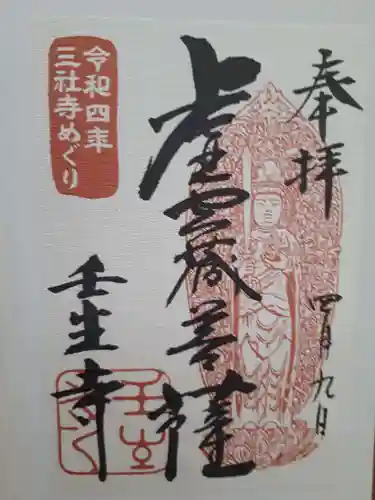 奉拝
四月九日
虚空蔵菩薩
令和四年
三社寺めぐり
壬生寺